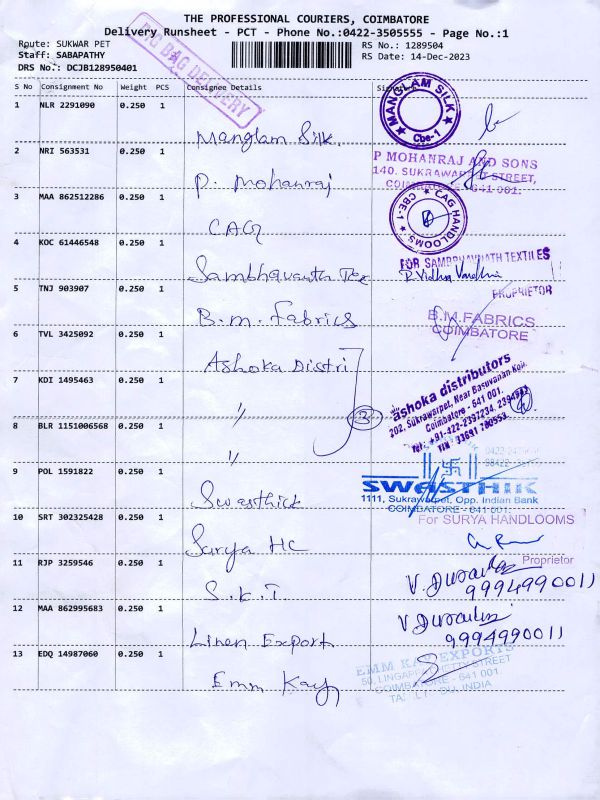 THE PROFESSIONAL COURIERS, COIMBATORE
Delivery Runsheet - PCT - Phone No.:0422-3505555 - Page No.:1
Route: SUKWAR PET
RS No.: 1289504
Staff: SABAPATHY
RS Date: 14-Dec-2023
DRS No.: DCJB128950401
BIG BAG DELIVERY
S No Consignment No Weight PCS Consignee Details
1 NLR 2291090 0.250 1 Manglam Silk.
MANGLAM SILK
Cbe-1
2 NRI 563531 0.250 1 P. Mohanraj
P MOHANRAJ AND SONS
140, SUKRAWARPET STREET,
COIMBATORE - 641 001.
3 MAA 862512286 0.250 1 CAG
CAG HANDLOOMS
CBE-1
4 KOC 61446548 0.250 1 Sambhavanth Tex
FOR SAMBHAVNATH TEXTILES
PROPRIETOR
5 TNJ 903907 0.250 1 B.m. Fabrics
B.M.FABRICS
COIMBATORE
6 TVL 3425092 0.250 1 Ashoka Distri
7 KDI 1495463 0.250 1 "
3
ashoka distributors
202, Sukrawarpet, Near Basuvanan Koil,
Coimbatore - 641 001.
Tel: +91-422-2397234,
8 BLR 1151006568 0.250 1 "
9 POL 1591822 0.250 1 Swasthick
SWASTHIK
1111, Sukrawarpet, Opp. Indian Bank
COIMBATORE - 641 001.
10 SRT 302325428 0.250 1 Surya HC
For SURYA HANDLOOMS
Proprietor
11 RJP 3259546 0.250 1 S.K.T
9994990011
12 MAA 862995683 0.250 1 Linen Export
9994990011
13 EDQ 14987060 0.250 1 Emm Kay
EMM KAY EXPORTS
50, LINGAPPA CHETTY STREET
COIMBATORE - 641 001.
INDIA